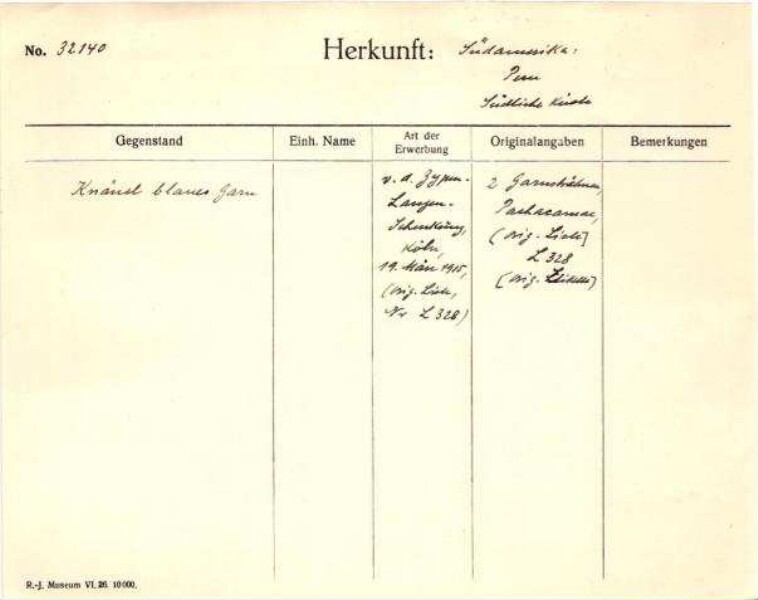 No. 32140
Herkunft: Südamerika:
Peru
Südliche Küste
Gegenstand
Einh. Name
Art der
Erwerbung
Originalangaben
Bemerkungen
Knäuel blaues Garn
v. d. Zypen-
Langen-
Schenkung,
Köln,
19. März 1915,
(Orig. Liste,
Nr L 328)
2
Pachacamac,
(Orig. Liste)
L 328
(Orig. Etikette)
R.-J. Museum VI. 26. 10000.